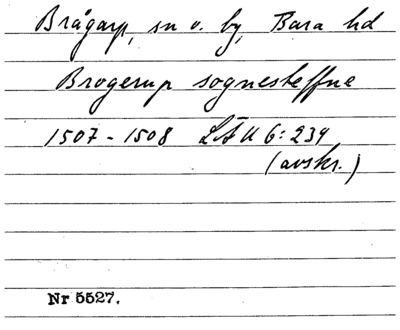 Brågarp, sn o. by, Bara hd
Brogerup sognesteffne
1507-1508 LÅU 6:234
(avskr.)
Nr 5527.